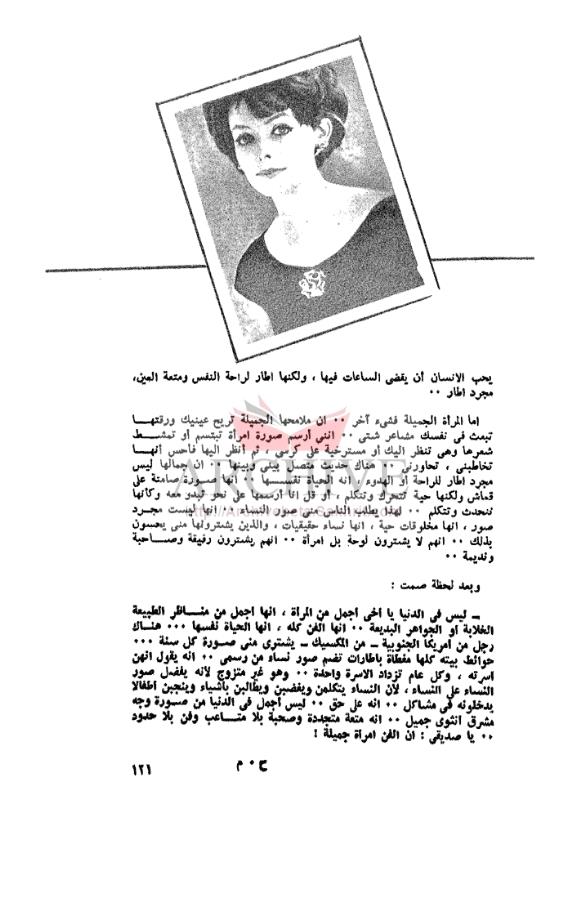 يحب الانسان أن يقضى الساعات فيها ، ولكنها اطار لراحة النفس ومتعة العين،
مجرد اطار ٠٠
اما المرأة الجميلة فشىء آخر ٠٠ ان ملامحها الجميلة تريح عينيك ورقتهـا
تبعث فى نفسك مشاعر شتى ٠٠ اننى أرسم صورة امرأة تبتسم أو تمشـط
شعرها وهى تنظر اليك أو مسترخية على كرسى ، ثم أنظر اليها فأحس أنهـا
تخاطبنى ، تحاورنى ٠٠ هناك حديث متصل بينى وبينها ٠٠ ان جمالها ليس
مجرد اطار للراحة أو الهدوء ، انه الحياة نفسـها ٠٠ انها صـورة صامتة على
قماش ولكنها حية تتحرك وتتكلم ، أو قل انا أرسمها على نحو تبدو معه وكأنها
تتحدث وتتكلم ٠٠ لهذا يطلب الناس منى صور النساء ، انها ليست مجـرد
صور ، انها مخلوقات حية ، انها نساء حقيقيات ، والذين يشترونها منى يحسون
بذلك ٠٠ انهم لا يشترون لوحة بل امرأة ٠٠ انهم يشترون رفيقة وصـاحبة
ونديمة ٠٠
وبعد لحظة صمت :
ـ ليس فى الدنيا يا أخى أجمل من المرأة ، انها أجمل من منـاظر الطبيعة
الخلابة أو الجواهر البديعة ٠٠ انها الفن كله ، انها الحياة نفسها ٠٠٠ هنـاك
رجل من أمريكا الجنوبية ـ من المكسيك ـ يشترى منى صـورة كل سـنة ٠٠٠
حوائط بيته كلها مغطاة باطارات تضم صور نساء من رسمى ٠٠ انه يقول انهن
أسرته ، وكل عام تزداد الاسرة واحدة ٠٠ وهو غير متزوج لأنه يفضـل صور
النساء على النساء ، لأن النساء يتكلمن ويغضبن ويطالبن بأشياء وينجبن أطفالا
يدخلونه فى مشاكل ٠٠ انه على حق ٠٠ ليس أجمل فى الدنيا من صـورة وجه
مشرق أنثوى جميل ٠٠ انه متعة متجددة وصحبة بلا متـاعب وفن بلا حدود
٠٠ يا صديقى : ان الفن امرأة جميلة !
ح ٠ م
١٢١
ARCHIVE